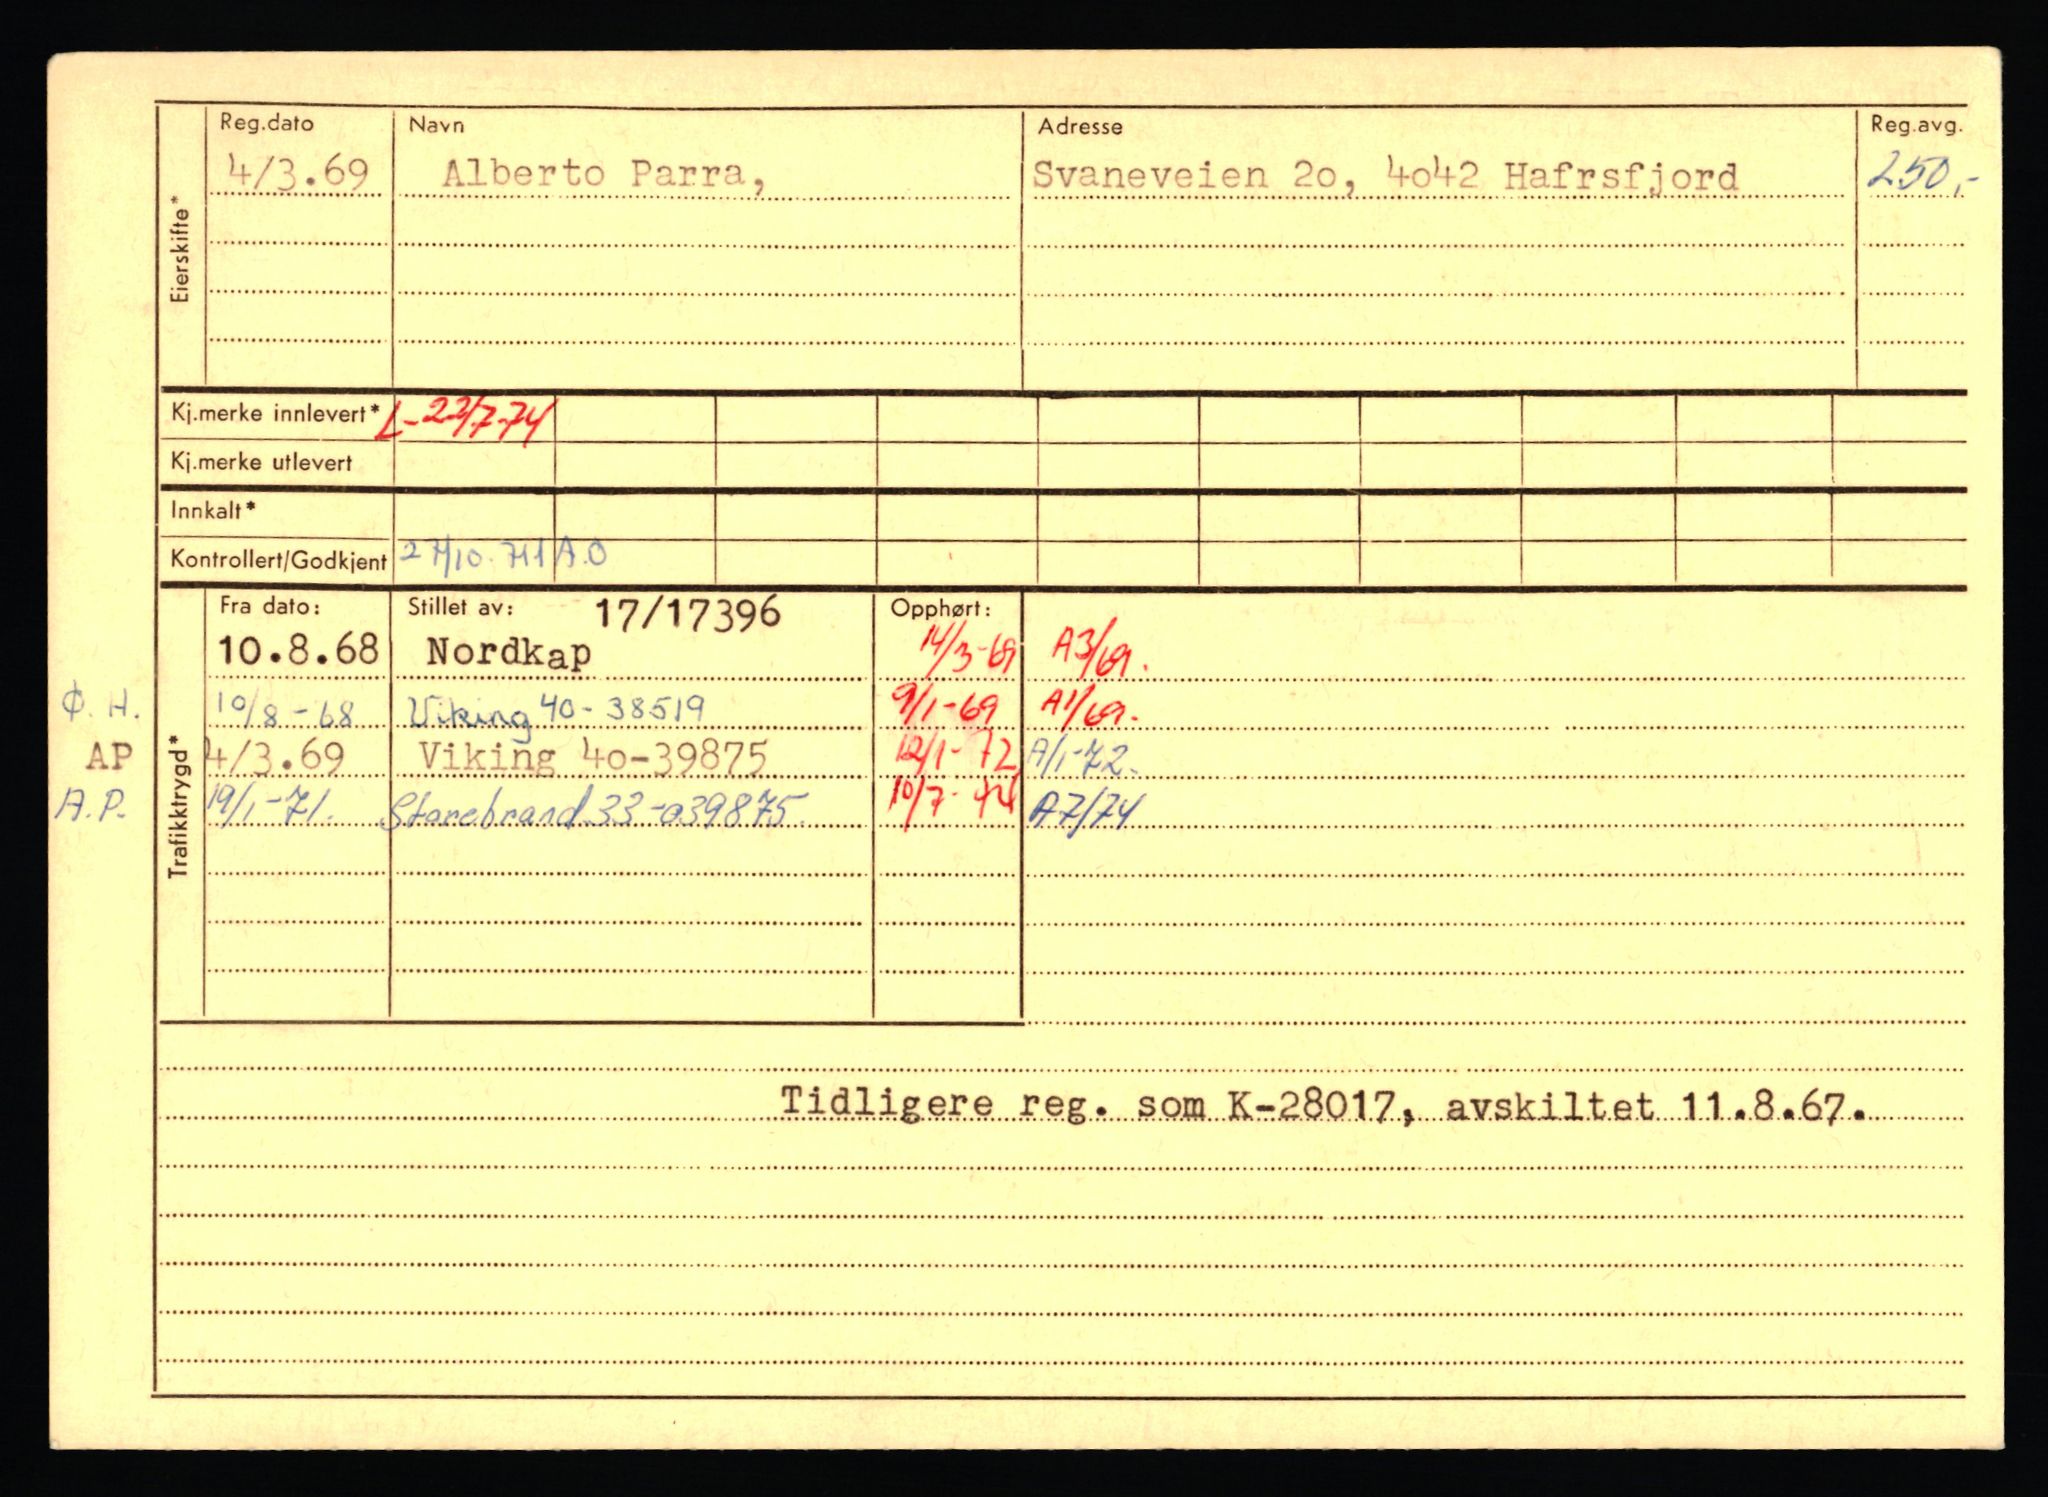 Reg.dato Navn Adresse Reg.avg.
4/3.69 Alberto Parra, Svaneveien 2o, 4o42 Hafrsfjord 250,-
Eierskifte*
Kj.merke innlevert* L-23/7-74
Kj.merke utlevert
Innkalt*
Kontrollert/Godkjent 27/10.71 A.O
Fra dato: Stillet av: 17/17396 Opphørt:
10.8.68 Nordkap 14/3-69 A3/69.
Ø.H. 10/8-68 Viking 40-38519 9/1-69 A1/69.
AP 4/3.69 Viking 4o-39875 12/1-72 A/1-72.
A.P. 19/1-71. Storebrand 33-039875. 10/7-74 A7/74
Trafikktrygd*
Tidligere reg. som K-28017, avskiltet 11.8.67.